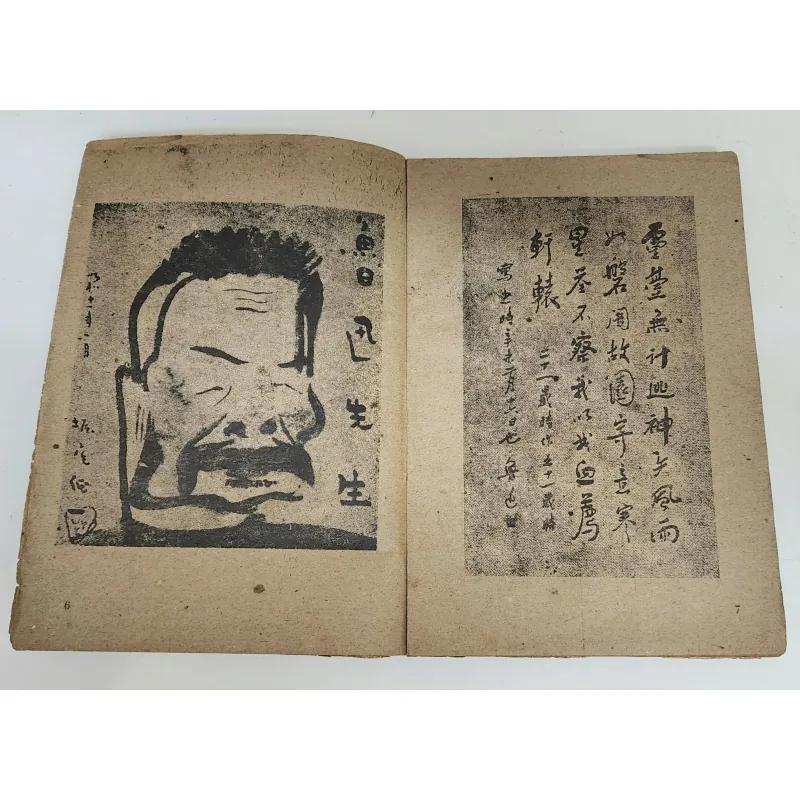 魯迅先生
昭和十一年
6
靈臺無計逃神矢風雨
如磐闇故園寄意寒
星荃不察我以我血薦
軒轅
二十一歲時作五十一歲時
寫之時辛未二月十六日也 魯迅
7